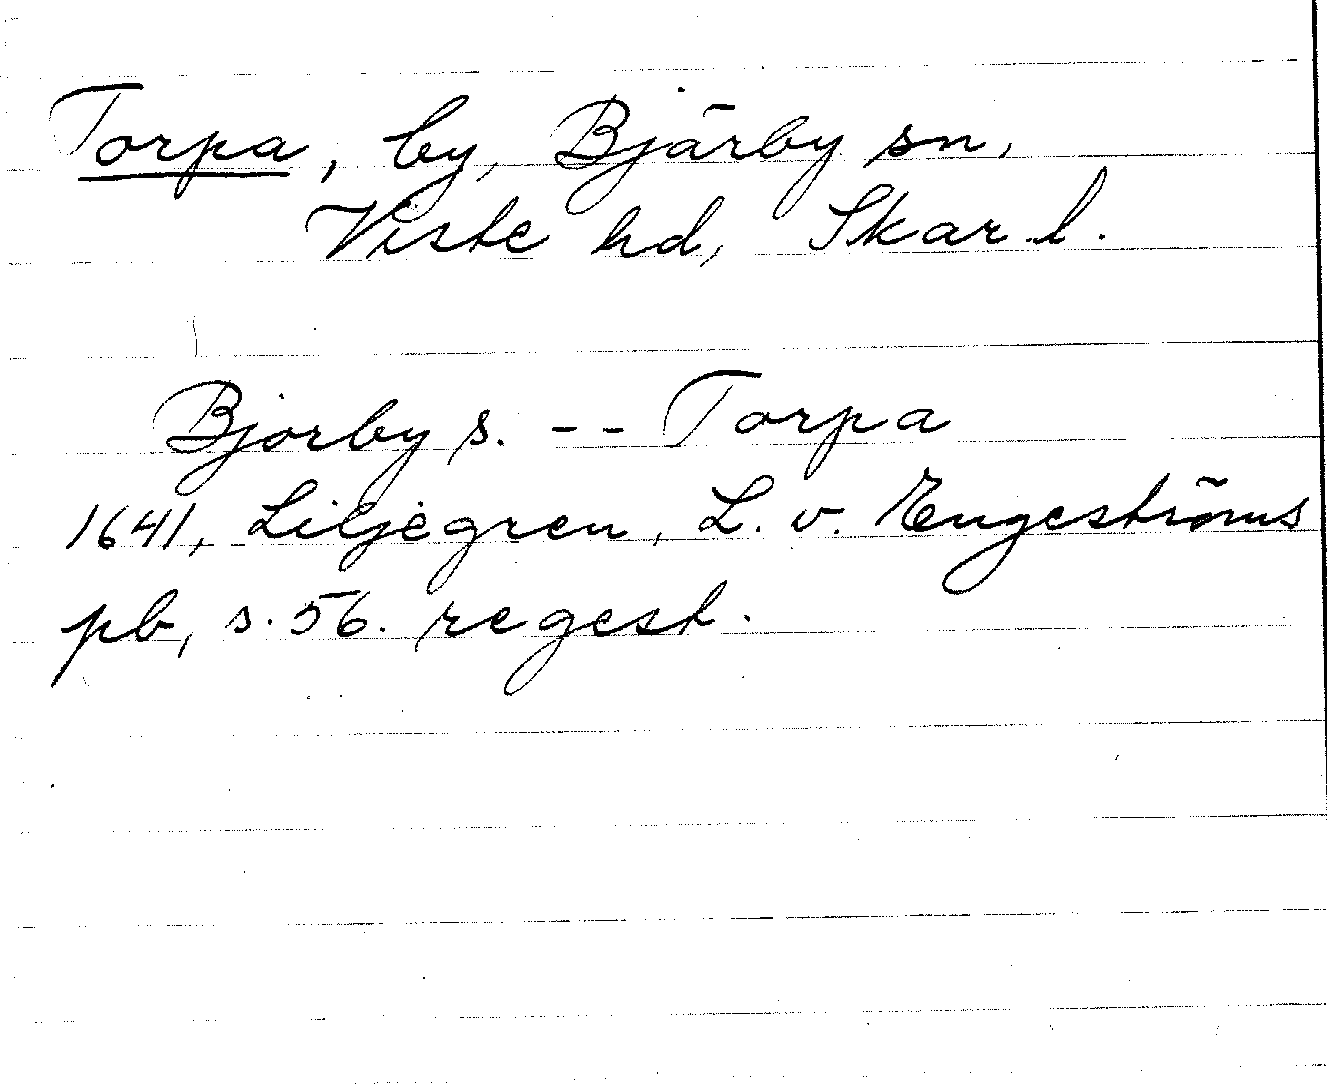 Torpa, by, Bjärby sn,
Viste hd, Skar.l.
Bjorby s. -- Torpa
1641, Liljegren, L. v. Engeströms
pb, s. 56. regest.